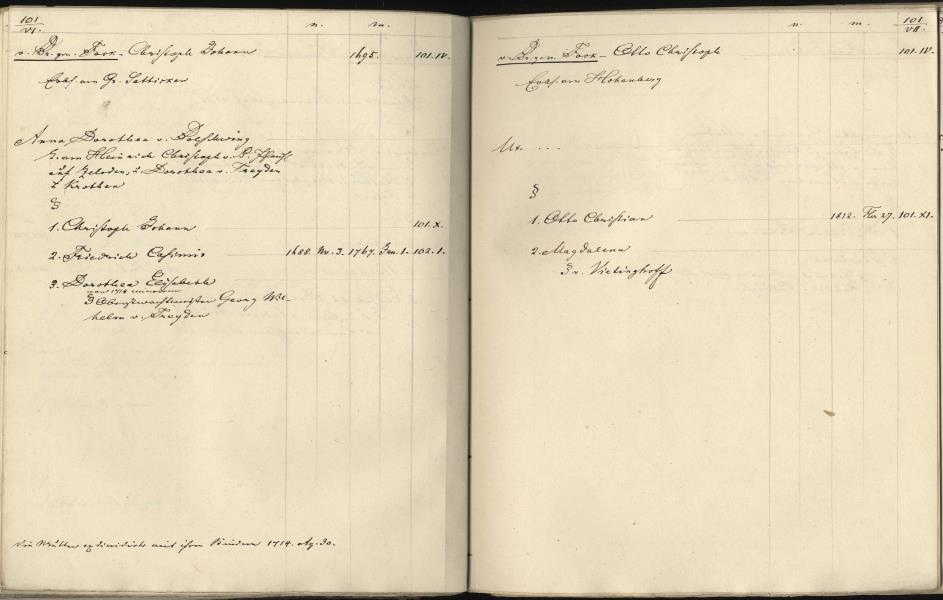 101
VI.
n. m.
v. Br. gen. Fock - Christoph Johann 1695. 101. IV.
Erbh. von Gr. Sattiken
Anna Dorothea v.
T. von Heinrich Christoph v. B.
auf Zeloden, u. Dorothea v. Treyden
a. Krothen
§
1. Christoph Johann 101. X.
2. Friedrich Casimir 1688. Nv. 3. 1767. Jan. 1. 102. 1.
3. Dorothea Elisabeth
1714
§ Oberstwachtmeister Georg Wil-
helm v. Treyden
Die Mutter exdividirte mit ihren Kindern 1714. Ag. 30.
n. m. 101
VII.
v. Br. gen. Fock - Otto Christoph 101. IV.
Erbh. von Hohenberg
Ux. ...
§
1. Otto Christian 1812. 27. 101. XI.
2. Magdalena
§ v. Vietinghoff